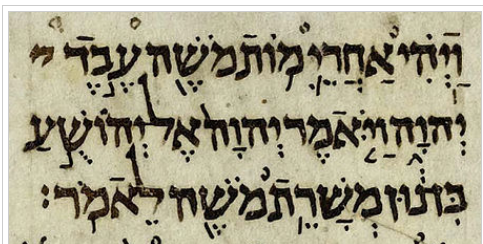 וַיְהִ֗י אַחֲרֵ֛י מ֥וֹת מֹשֶׁ֖ה עֶ֣בֶד
יְהוָ֑ה וַיֹּ֤אמֶר יְהוָה֙ אֶל־יְהוֹשֻׁ֣עַ
בִּן־נ֔וּן מְשָׁרֵ֥ת מֹשֶׁ֖ה לֵאמֹֽר׃